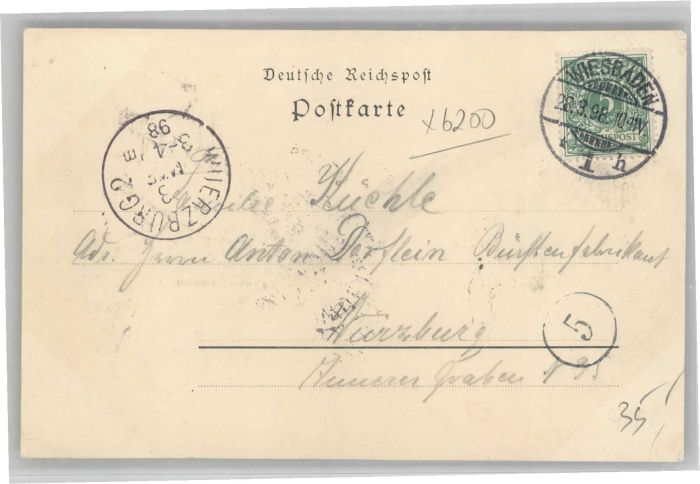 Deutsche Reichspost
Postkarte
x6200
WIESBADEN
28.3.98. 10-11V.
1 h
5
REICHSPOST
WUERZBURG 2
3-4 N
98
Familie Küchle
Adr. Herrn Anton Dorflein Bürstenfabrikant
Würzburg
Innerer Graben N
5
35